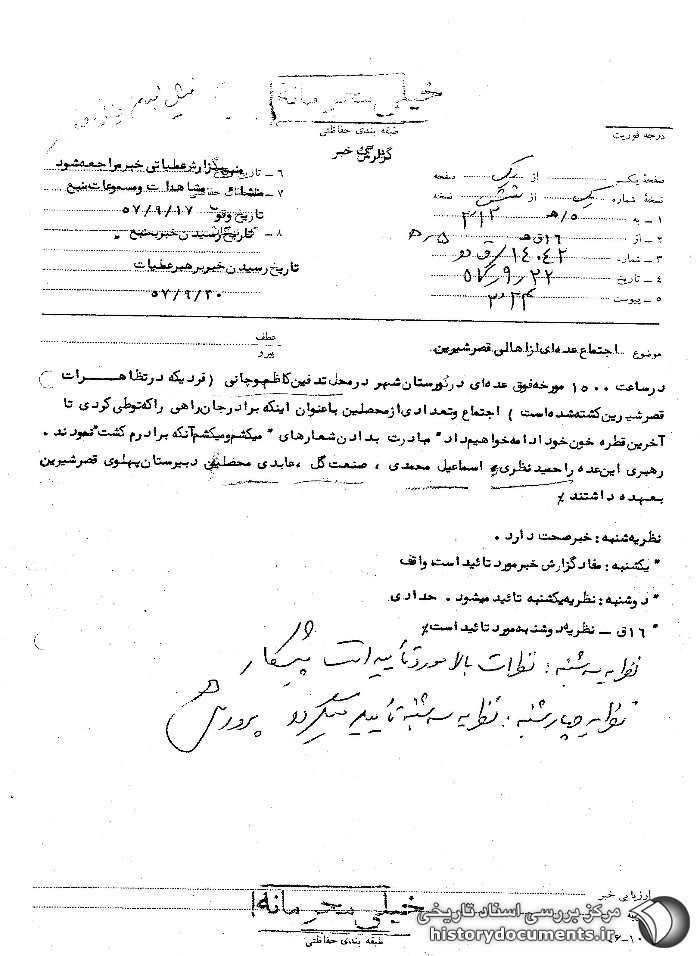 خیلی محرمانه
طبقه بندی حفاظتی
درجه فوریت
گزارش خبر
صفحهٔ یکس یک از صفحه
نسخهٔ شماره یک از شش نسخه
۱ - به ۵/هـ ۳۱۲
۲ - از ۱۶ق هـ
۳ - شماره ۱۴۰۴۲/ق دو
۴ - تاریخ ۲۲ر۹ر۵۷
۵ - پیوست
۶ - تاریخ گزارش عملیاتی خبر مراجعه شود
۷ - منشاء مشاهدات و مسموعات منبع
تاریخ وقوع ۵۷/۹/۱۷
۸ - تاریخ رسیدن خبر به منبع
تاریخ رسیدن خبر برهبر عملیات
۵۷/۹/۲۰
موضوع اجتماع عده ای از اهالی قصر شیرین
عطف
پیرو
در ساعت ۱۵۰۰ مورخه فوق عده ای در گورستان شهر در محل تدفین کاظم وجانی ( فردیکه در تظاهرات
قصر شیرین کشته شده است ) اجتماع و تعدادی از محصلین با عنوان اینکه برادر جان راهی را که تو طی کردی تا
آخرین قطره خون خود ادامه خواهیم داد" مبادرت بدادن شعارهای " میکشم و میکشم آنکه برادرم کشت" نمودند .
رهبری این عده را حمید نظری ، اسماعیل محمدی ، صنعت گل ، عابدی محصلین دبیرستان پهلوی قصر شیرین
بعهده داشتند٪
نظریه شنبه : خبر صحت دارد .
" یکشنبه : مفاد گزارش خبر مورد تائید است. واقف
" دوشنبه : نظریه یکشنبه تائید میشود . حدادی
" ۱۶ق – نظریه دوشنبه مورد تائید است٪
نظریه سه شنبه : نظرات بالا مورد تأیید است پیکار
نظریه چهارشنبه : نظریه سه شنبه تأیید میگردد پرورش
ارزیابی خبر
خیلی محرمانه
طبقه بندی حفاظتی
مرکز بررسی اسناد تاریخی
historydocuments.ir